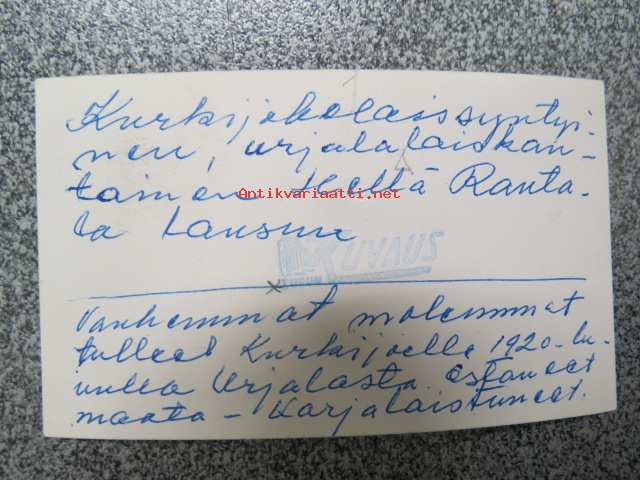 Kurkijokelaissyntyi-
nen, urjalalaiskan-
tainen Hellä Ranta-
la lausuu
Antikvariaatti.net
KUVAUS
Vanhemmat molemmat
tulleet Kurkijoelle 1920-lu-
vulla Urjalasta. Ostaneet
maata - Karjalaistuneet.